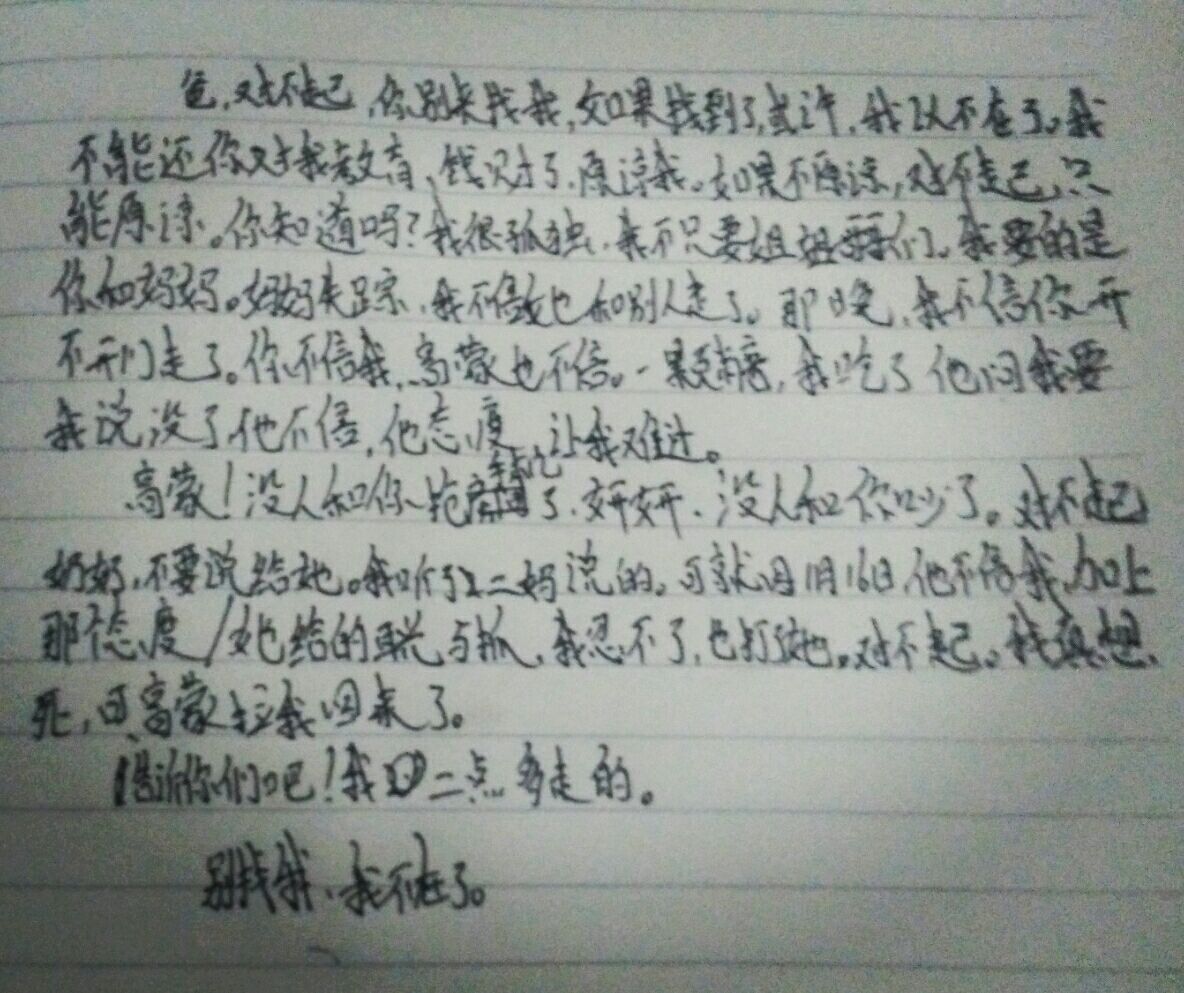 爸，对不起，你别来找我，如果找到了，或许，我以不在了。我
不能还你对我教育、钱財了，原谅我。如果不原谅，对不起，只
能原谅。你知道吗？我很孤独，我不只要姐姐们。我要的是
你和妈妈。妈妈失踪，我不信她和别人走了。那晚，我不信你开
不开门走了。你不信我，高蒙也不信。一果，我吃了他问我要
我说没了，他不信，他态度，让我难过。
高蒙！没人和你抢了，妍妍，没人和你吵了。对不起
奶奶，不要说给她。我听了二妈说的。可就月16日，他不信我，加上
那个态度/她给的与抓，我忍不了，也打她。对不起。我真想
死，可高蒙拉我回来了。
告诉你们吧！我二点多走的。
别找我，我不在了。